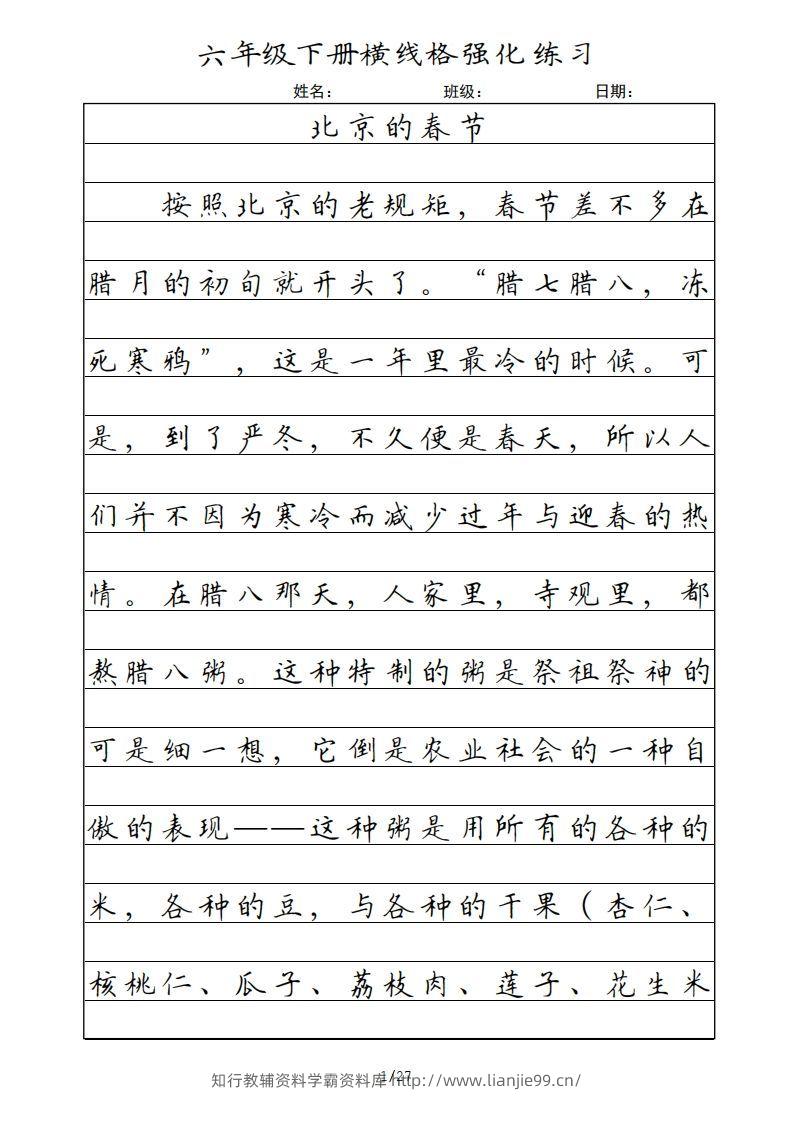 六年级下册横线格强化练习
姓名： 班级： 日期：
北京的春节
按照北京的老规矩，春节差不多在
腊月的初旬就开头了。“腊七腊八，冻
死寒鸦”，这是一年里最冷的时候。可
是，到了严冬，不久便是春天，所以人
们并不因为寒冷而减少过年与迎春的热
情。在腊八那天，人家里，寺观里，都
熬腊八粥。这种特制的粥是祭祖祭神的
可是细一想，它倒是农业社会的一种自
傲的表现——这种粥是用所有的各种的
米，各种的豆，与各种的干果（杏仁、
核桃仁、瓜子、荔枝肉、莲子、花生米
1/27
知行教辅资料学霸资料库 http://www.lianjie99.cn/